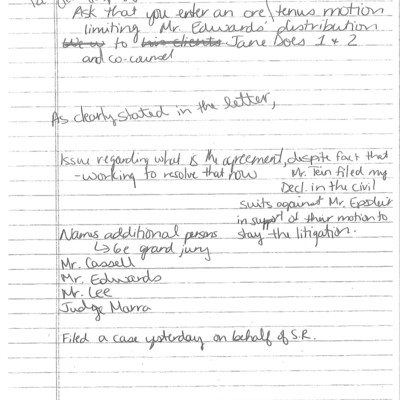 Ask that you enter an ore tenus motion
limiting Mr. Edwards' distribution
to his clients Jane Does 1 & 2
and co-counsel
As clearly stated in the letter,
Issue regarding what is the agreement, despite fact that
- working to resolve that now Mr. Tein filed my
Decl. in the civil
suits against Mr. Epstein
in support of their motion to
Names additional persons stay the litigation.
↳ 6e grand jury
Mr. Cassell
Mr. Edwards
Mr. Lee
Judge Marra
Filed a case yesterday on behalf of S.R.